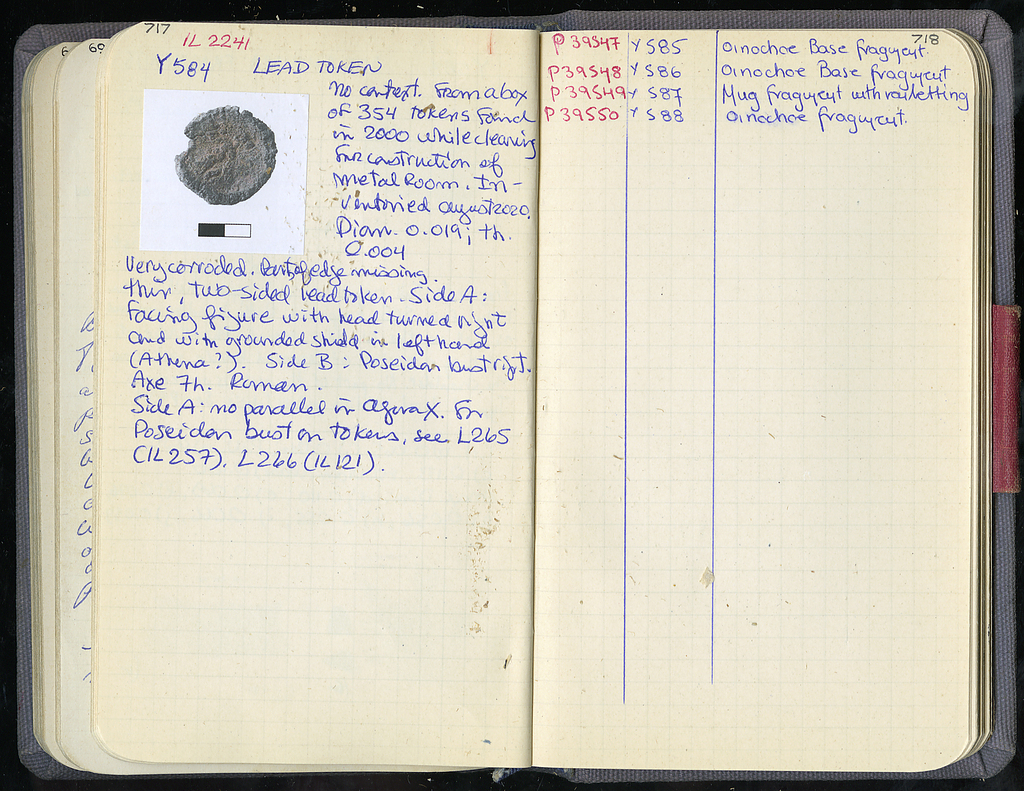 717
IL 2241
Y 584 LEAD TOKEN
No context. From a box
of 354 tokens found
in 2000 while cleaning
for construction of
Metal Room. In-
ventoried august 2020.
Diam. 0.019; th.
0.004
Very corroded. Part of edge missing.
thin, two-sided lead token. Side A:
facing figure with head turned right
and with grounded shield in left hand
(Athena?). Side B: Poseidon bust right.
Axe 7h. Roman.
Side A: no parallel in Agora X. For
Poseidon bust on tokens, see L265
(IL 257), L266 (IL 121).
718
P 39547 Y 585 Oinochoe Base fragment
P 39548 Y 586 Oinochoe Base fragment
P 39549 Y 587 Mug fragment with
P 39550 Y 588 Oinochoe fragment.